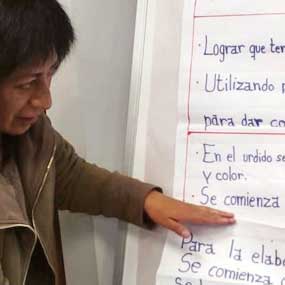 · Lograr que ten
· Utilizando p
para dar co
· En el urdido se
y color.
· Se comienza
Para la elab
Se comienza c